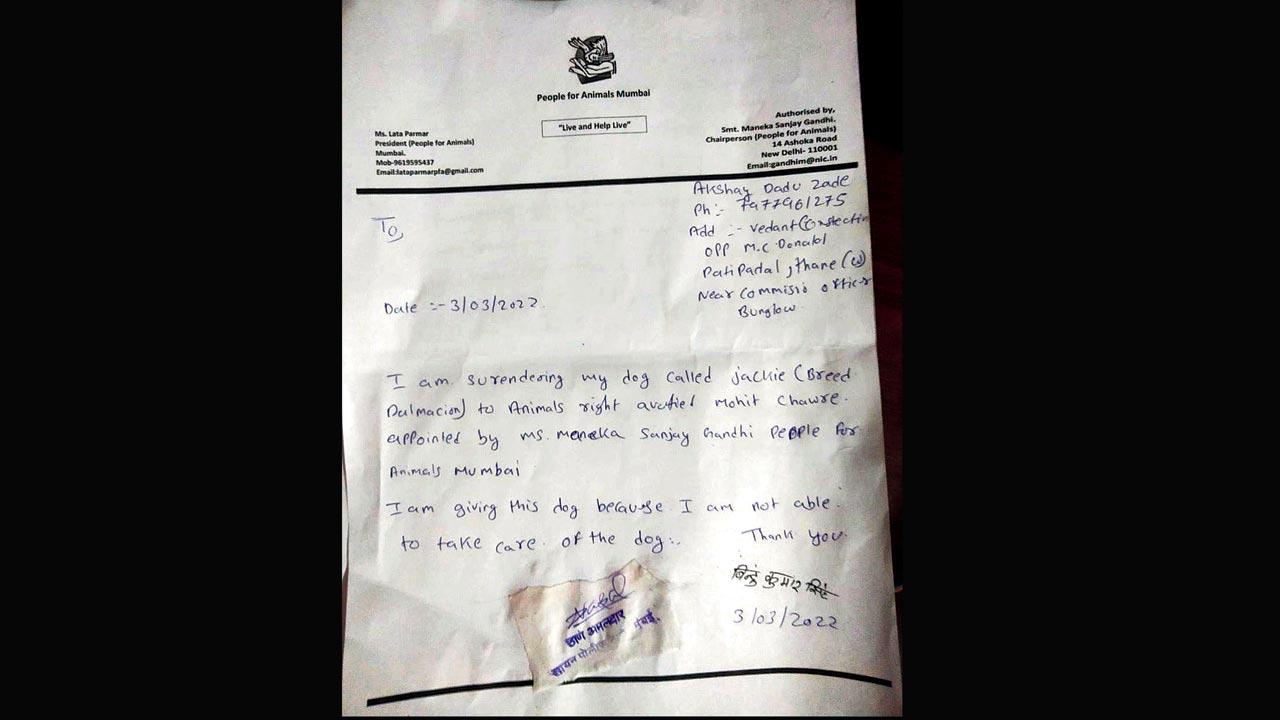 People for Animals Mumbai
"Live and Help Live"
Ms. Lata Parmar
President (People for Animals)
Mumbai.
Mob-9619595437
Email:lataparmarpfa@gmail.com
Authorised by,
Smt. Maneka Sanjay Gandhi.
Chairperson (People for Animals)
14 Ashoka Road
New Delhi- 110001
Email:gandhim@nic.in
Akshay Dadu Zade
Ph :- 7977961275
Add :- Vedant
OPP M.C. Donald
Patipadal, Thane (W)
Near Commissio officer
Bunglow.
To,
Date :- 3/03/2022.
I am surendering my dog called jackie (Breed
Dalmacion) to Animals right avatiel Mohit Chawre.
appointed by ms. maneka Sanjay Gandhi People For
Animals Mumbai
I am giving this dog because I am not able.
to take care. of the dog:.
Thank you.
बिन्दु कुमार सिंह
3/03/2022
ठाणे अमलदार
सायन पोलीस मुंबई.